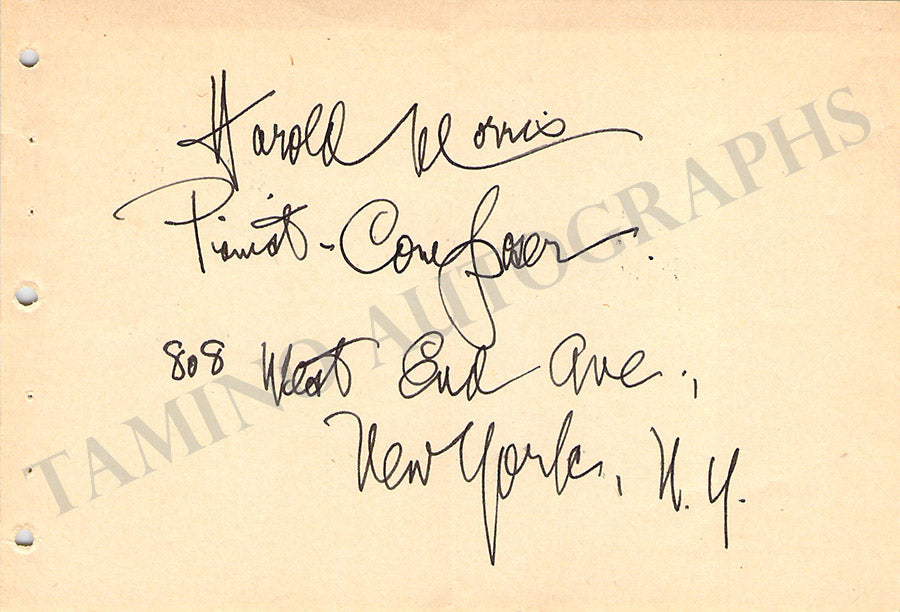 Harold Morris
Pianist - Composer.
808 West End Ave.,
New York, N.Y.
TAMINO AUTOGRAPHS